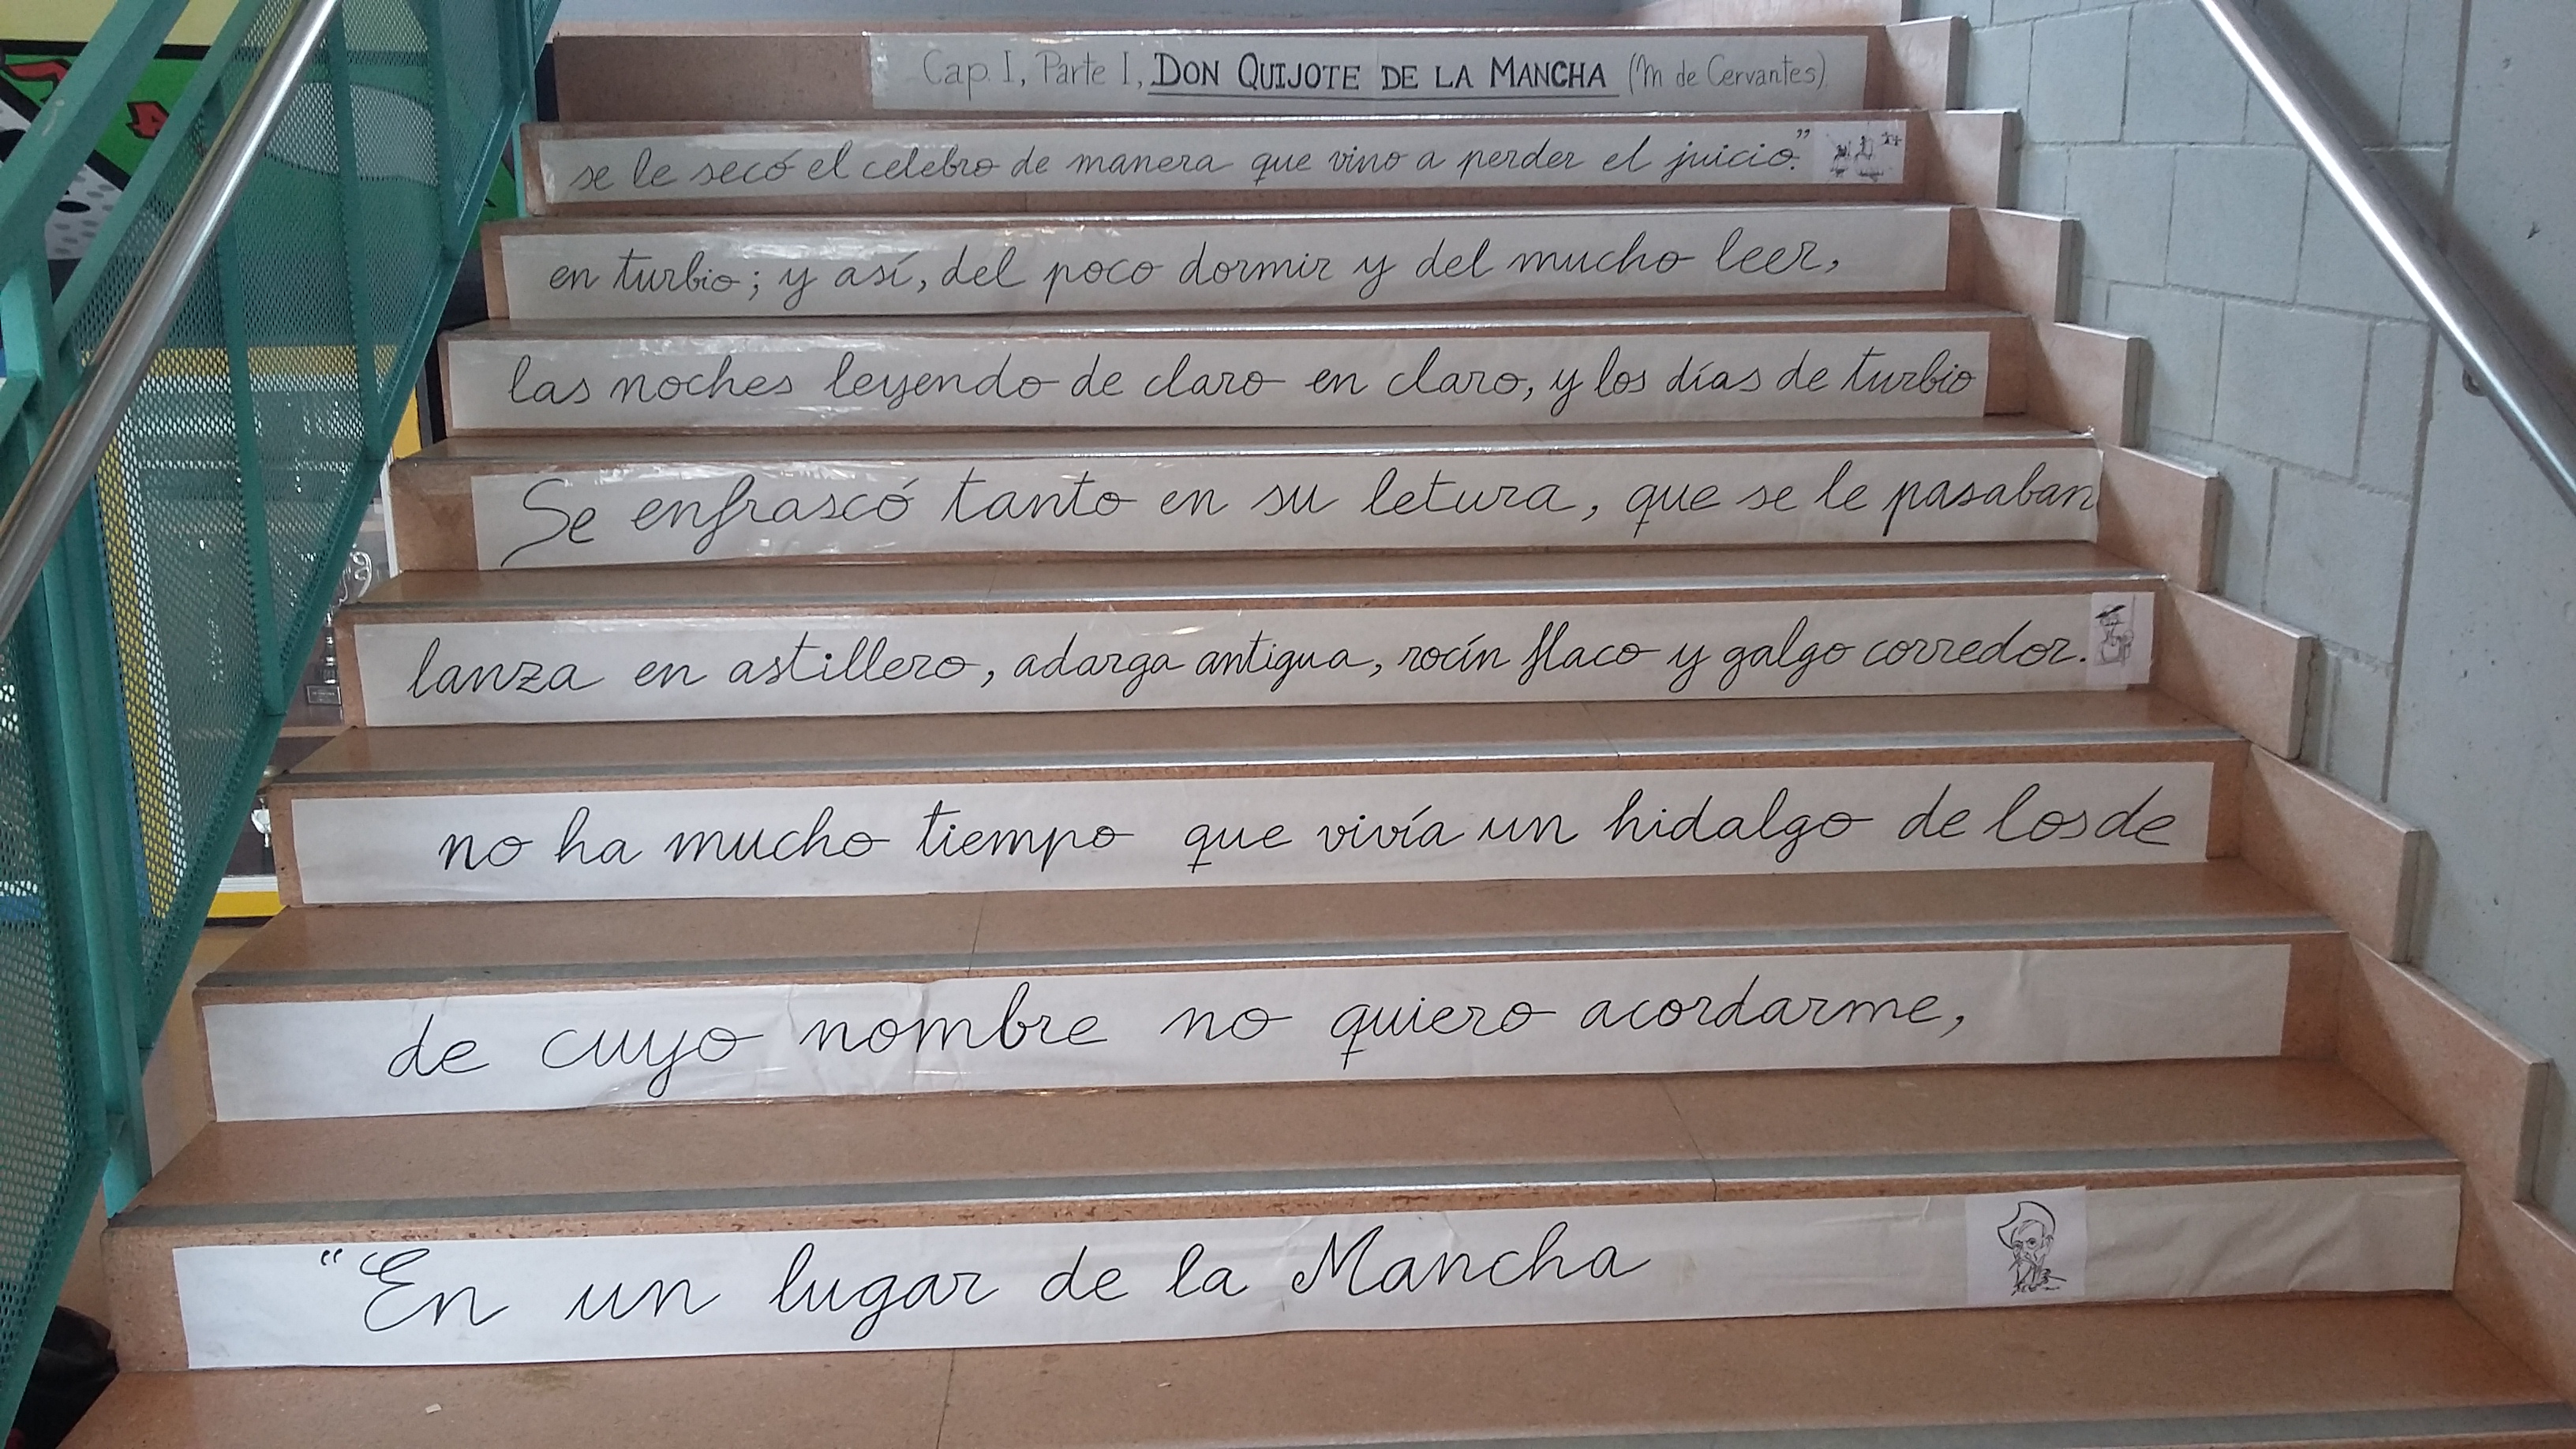 Cap. I, Parte I, DON QUIJOTE DE LA MANCHA (M de Cervantes)
se le secó el celebro de manera que vino a perder el juicio."
en turbio; y así, del poco dormir y del mucho leer,
las noches leyendo de claro en claro, y los días de turbio
Se enfrascó tanto en su letura, que se le pasaban
lanza en astillero, adarga antigua, rocín flaco y galgo corredor.
no ha mucho tiempo que vivía un hidalgo de los de
de cuyo nombre no quiero acordarme,
"En un lugar de la Mancha